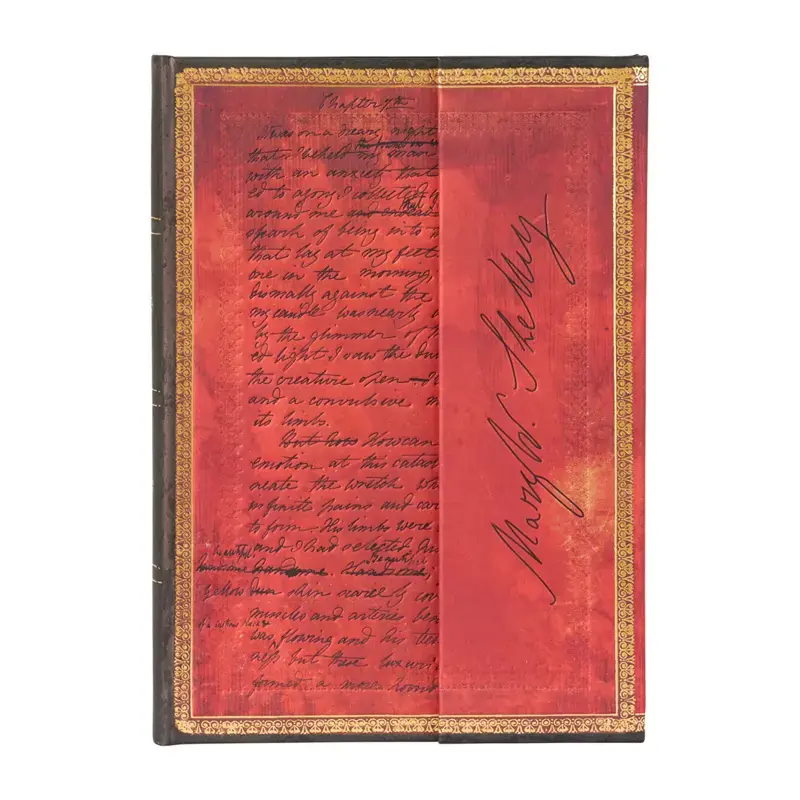 Chapter 7th
It was on a dreary night
that I beheld my man
with an anxiety that
ed to agony I collected
around me and endeav
spark of being into
that lay at my feet
one in the morning,
dismally against the
my candle was nearly
by the glimmer of
ed light I saw the du
the creature open
and a convulsive m
its limbs.
But how How can
emotion at this catas
neate the wretch wh
infinite pains and car
to form. His limbs were
and I had selected his
beautiful
handsome handsome. Handsome;
Beautiful
yellow dun skin scarcely cov
muscles and arteries ben
of a lustrous black &
was flowing and his teeth
ness but these luxuri
formed a more horrid
Mary W. Shelley